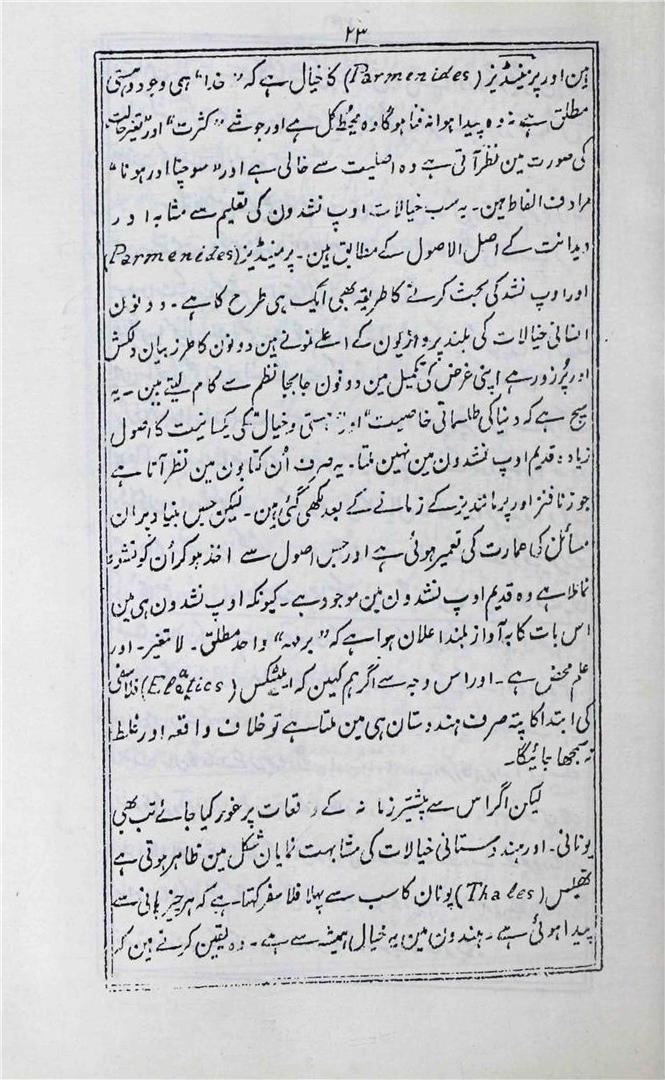 ۲۳
ہن اور پرمینڈیز (Parmenides) کا خیال ہے کہ "خدا" ہی وجود وہستی
مطلق ہے نہ وہ پیدا ہوا نہ فنا ہوگا وہ محیط کل ہے اور جو شے "کثرت" اور "تغیر حالت
کی صورت مین نظر آتی ہے وہ اصلیت سے خالی ہے اور "سوچنا اور ہونا"
مرادف الفاظ ہین۔ یہ سب خیالات اوپ نشدون کی تعلیم سے مشابہ اور
ویدانت کے اصل الاصول کے مطابق ہین۔ پرمنیڈیز (Parmenides)
اور اوپ نشد کی بحث کرنے کا طریقہ بھی ایک ہی طرح کا ہے۔ دونون
انسانی خیالات کی بلند پروازیون کے اعلے نمونے ہین دونون کا طرز بیان دلکش
اور پُر زور ہے اپنی غرض کی تکمیل مین دونون جابجا نظم سے کام لیتے ہین۔ یہ
سچ ہے کہ دنیا کی طلسماتی خاصیت" اور "ہستی و خیال" کی یکسانیت کا اصول
زیادہ قدیم اوپ نشدون مین نہین ملتا۔ یہ صرف اُن کتابون مین نظر آتا ہے
جو زنافنز اور پرمانڈیز کے زمانے کے بعد لکھی گئی ہین۔ لیکن جس بنیاد پر ان
مسائل کی عمارت کی تعمیر ہوئی ہے اور جس اصول سے اخذ ہوکر اُن کو نشوو
نما ملا ہے وہ قدیم اوپ نشدون مین موجود ہے۔ کیونکہ اوپ نشدون ہی مین
اس بات کا بہ آواز بلند اعلان ہوا ہے کہ "برمہہ" واحد مطلق۔ لاتغیر۔ اور
علم محض ہے۔ اور اس وجہ سے اگر ہم کہین کہ ایلیٹکس (Eleatics) فلاسفی
کی ابتدا کا پتہ صرف ہندوستان ہی مین ملتا ہے تو خلاف واقعہ اور غلط
نہ سمجھا جائیگا۔
لیکن اگر اس سے پیشتر زمانہ کے واقعات پر غور کیا جائے تب بھی
یونانی۔ اور ہندوستانی خیالات کی مشابہت نمایان شکل مین ظاہر ہوتی ہے
تھیلس (Thales) یونان کا سب سے پہلا فلاسفر کہتا۔ ہے کہ ہر چیز پانی سے
پیدا ہوئی ہے۔ ہندون مین یہ خیال ہمیشہ سے ہے۔ وہ یقین کرتے ہین کہ